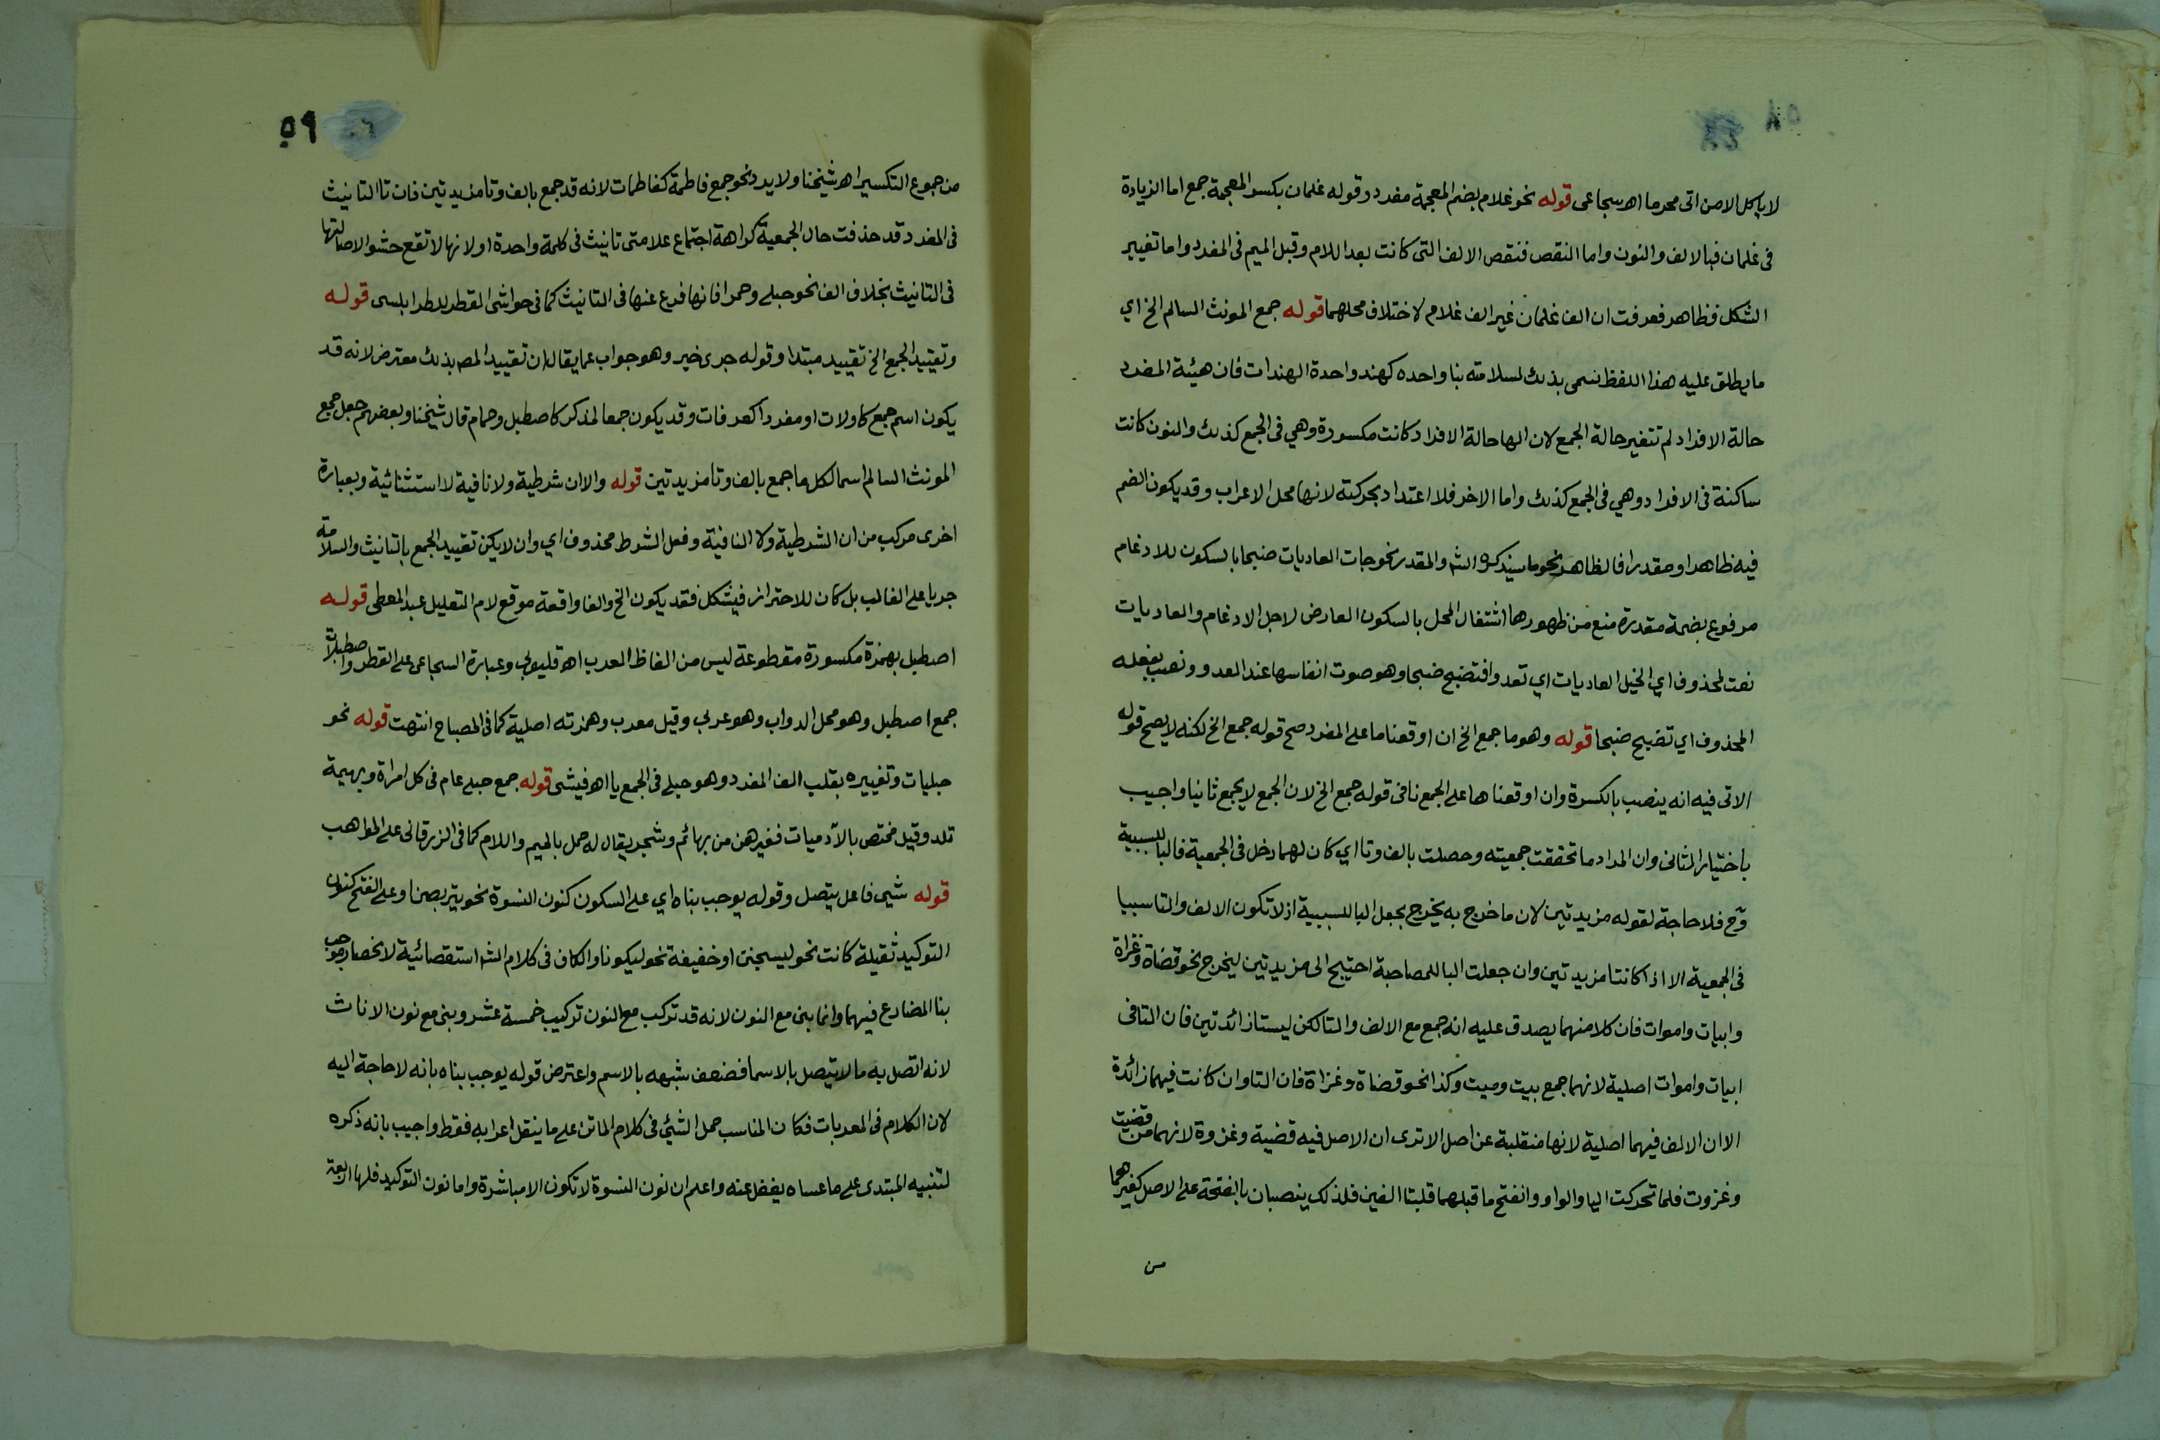 ٥٨
لا ياكل الا من اتى محرما اهر سجاعى قوله نحو غلام بضم المعجمة مفرد وقوله غلمان بكسر المعجمة جمع اما الزيادة
فى غلمان فبالالف والنون واما النقص فنقص الالف التى كانت بعد اللام وقبل الميم فى المفرد واما تغيير
الشكل فظاهر فعرفت ان الف غلمان غير الف غلام لاختلاف محلهما قوله جمع المونث السالم الخ اي
ما يطلق عليه هذا اللفظ سمى بذلك لسلامة بنا واحده كهند واحدة الهندات فان هيئة المفرد
حالة الافراد لم تتغير حالة الجمع لان الها حالة الافراد كانت مكسورة وهي فى الجمع كذلك والنون كانت
ساكنة فى الافراد وهي فى الجمع كذلك واما الاخر فلا اعتداد بحركته لانها محل الاعراب وقد يكون الضم
فيه ظاهرا ومقدرا فالظاهر نحو ما سيذكره الش والمقدر نحو جات العاديات ضبحا بالسكون للادغام
مرفوع بضمة مقدرة منع من ظهورها اشتغال المحل بالسكون العارض لاجل الادغام والعاديات
نعت لمحذوف اي الخيل العاديات اي تعدوا فتضبح ضبحا وهو صوت انفاسها عند العدو ونصب بفعله
المحذوف اي تضبح ضبحا قوله وهو ما جمع الخ ان اوقعنا ما على المفرد صح قوله جمع الخ لكنه لا يصح قوله
الاتى فيه انه ينصب بالكسرة وان اوقعناها على الجمع نافى قوله جمع الخ لان الجمع لا يجمع ثانيا واجيب
باختيار الثانى وان المراد ما تحققت جمعيته وحصلت بالف وتا اي كان لهما دخل فى الجمعية فالبا للسببية
وح فلا حاجة لقوله مزيدتين لان ما خرج به يخرج بجعل البا للسببية اذ لا تكون الالف والتا سببا
فى الجمعية الا اذا كانتا مزيدتين وان جعلت البا للمصاحبة احتيج الى مزيدتين ليخرج نحو قضاة وغزاة
وابيات واموات فان كلا منهما يصدق عليه انه جمع مع الالف والتا لكن ليستا زائدتين فان التا فى
ابيات واموات اصلية لانهما جمع بيت وميت وكذا نحو قضاة وغزاة فان التا وان كانت فيهما زائدة
الا ان الالف فيهما اصلية لانها منقلبة عن اصل الا ترى ان الاصل فيه قضية وغزوة لانهما من قضيت
وغزوت فلما تحركت اليا والواو وانفتح ما قبلهما قلبتا الفين فلذلك ينصبان بالفتحة على الاصل كغيرهما
من
٥٩
من جموع التكسير اهر شيخنا ولا يرد نحو جمع فاطمة كفاطمات لانه قد جمع بالف وتا مزيدتين فان تا التانيث
فى المفرد قد حذفت حال الجمعية كراهة اجتماع علامتى تانيث فى كلمة واحدة او لانها لا تقع حشوا لاصالتها
فى التانيث بخلاف الف نحو حبلى وحمرا فانها فرع عنها فى التانيث كما فى حواشى القطر للطرابلسى قوله
وتقييد الجمع الخ تقييد مبتدا وقوله جرى خبر وهو جواب عما يقال ان تقييد المصـ بذلك معترض لانه قد
يكون اسم جمع كاولات او مفردا كعرفات وقد يكون جمعا لمذكر كاصطبل وحمام قال شيخنا وبعضهم جعل جمع
المونث السالم اسما لكل ما جمع بالف وتا مزيدتين قوله والا ان شرطية ولا نافية لا استثنائية وبعبارة
اخرى مركب من ان الشرطية ولا النافية وفعل الشرط محذوف اي وان لا يكن تقييد الجمع بالتانيث والسلامة
جريا على الغالب بل كان للاحتراز فيشكل فقد يكون الخ والفا واقعة موقع لام التعليل عبد المعطى قوله
اصطبل بهمزة مكسورة مقطوعة ليس من الفاظ العرب اهر قليوبي وعبارة السجاعى على القطر واصطبلات
جمع اصطبل وهو محل الدواب وهو عربي وقيل معرب وهمزته اصلية كما فى المصباح انتهت قوله نحو
حبليات وتغييره بقلب الف المفرد وهو حبلى فى الجمع يا اهر فيشى قوله جمع حبلى عام فى كل امراة وبهيمة
تلد وقيل مختص بالآدميات فغيرهن من بهائم وشجر يقال له حمل بالميم واللام كما فى الزرقانى على المواهب
قوله شيى فاعل يتصل وقوله يوجب بناه اي على السكون كنون النسوة نحو يتربصن او على الفتح كنون
التوكيد ثقيلة كانت نحو ليسجنن او خفيفة نحو ليكونا والكاف فى كلام الش استقصائية لانحصار موجب
بنا المضارع فيهما وانما بنى مع النون لانه قد تركب مع النون تركيب خمسة عشر وبنى مع نون الاناث
لانه اتصل به ما لا يتصل بالاسما فضعف شبهه بالاسم واعترض قوله يوجب بناه بانه لا حاجة اليه
لان الكلام فى المعربات فكان المناسب حمل الشئ فى كلام الماتن على ما ينقل اعرابه فقط واجيب بانه ذكره
لتنبيه المبتدى على ما عساه يغفل عنه واعلم ان نون النسوة لا تكون الا مباشرة واما نون التوكيد فلها اربعة